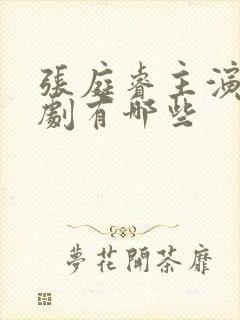 張庭睿主演
劇有哪些
夢花開荼靡